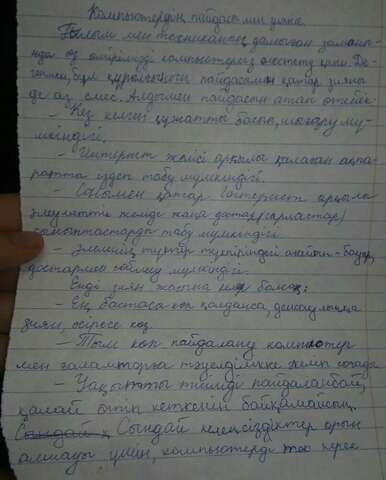 Компьютердің пайдасы мен зияны
Ғылым мен техниканың дамыған заманы-
нда өз өмірімізді компьютерсіз елестету қиын. Де-
генмен, бұл құрылғының пайдасымен қатар зияны
де аз емес. Алдымен пайдасын атап өтейік
- Кез келген құжатты басып, шығару мү-
мкіндігі.
- Интернет желісі арқылы қалаған ақпа-
ратты іздеп табу мүмкіндігі.
- Сонымен қатар интернет арқылы
әлеуметтік желіде жаңа достар (сырластар)
сыныптастарды табу мүмкіндігі.
- Әлемнің түкпір түкпіріндегі ағайын-бауыр,
достармен сөйлесу мүмкіндігі.
Енді зиян жағына келер болсақ:
- Ең бастысы көп қолданса, денсаулыққа
зиян, әсіресе көз.
- Тым көп пайдалану компьютер
мен ғаламторға тәуелділікке алып соғады
- Уақытты тиімді пайдаланбай,
қалай өтіп кеткенін байқамайсың.
Сондай Сондай келеңсіздіктер орын
алмауы үшін, компьютерді тек керек